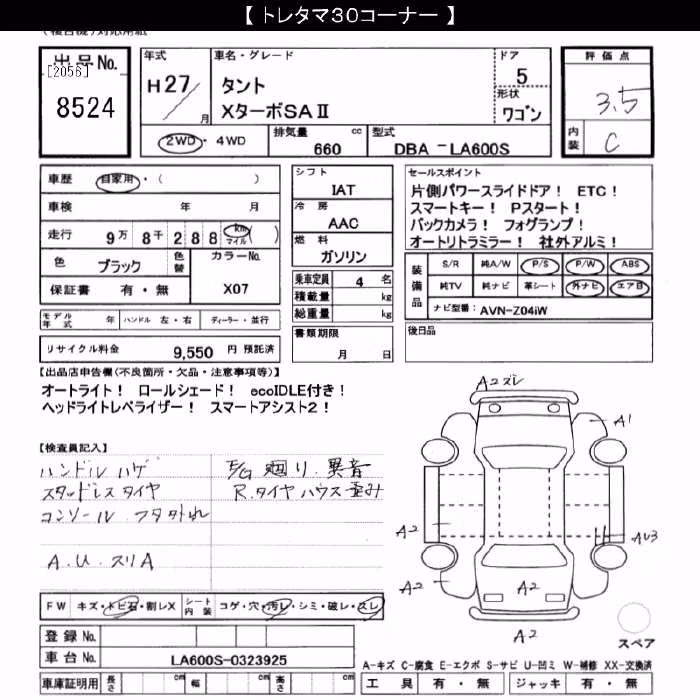 【 トレタマ30コーナー 】
出品No.
[2056]
8524
年式
H27/
月
車名・グレード
タント
XターボSAⅡ
ドア
5
形状
ワゴン
2WD・4WD
排気量
cc
660
型式
DBA－LA600S
評価点
3.5
内装
C
車歴
自家用・( )
車検
年 月
走行
9万 8千 2 8 8 km マイル ( )
色
ブラック
色替
カラーNo.
X07
保証書 有・無
モデル年式
年
ハンドル 左・右
ディーラー・並行
リサイクル料金
9,550 円 預託済
シフト
IAT
冷房
AAC
燃料
ガソリン
乗車定員 4 名
積載量 kg
総重量 kg
書類期限
月 日
セールスポイント
片側パワースライドドア！ ETC！
スマートキー！ Pスタート！
バックカメラ！ フォグランプ！
オートリトラミラー！ 社外アルミ！
装備品
S/R 純A/W P/S P/W ABS
純TV 純ナビ 革シート 外ナビ エアB
ナビ型番 AVN-Z04iW
後日品
【出品店申告欄(不良箇所・欠品・注意事項等)】
オートライト！ ロールシェード！ ecoIDLE付き！
ヘッドライトレベライザー！ スマートアシスト2！
【検査員記入】
ハンドル ハゲ
スタッドレスタイヤ
コンソール フタ 外れ
A.U.スリA
E/G 廻り.異音
R.タイヤハウス歪み
FW キズ・トビ石・割レX
シート内装 コゲ・穴・汚レ・シミ・破レ・スレ
登録No.
車台No.
LA600S-0323925
車庫証明用 長さ cm 幅 cm 高さ cm
A2ズレ
A1
A2
AU3
A2
A2
A2
A2
スペア
A-キズ C-腐食 E-エクボ S-サビ U-凹ミ W-補修 XX-交換済
工具 有・無 ジャッキ 有・無